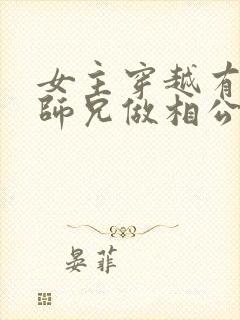 女主穿越有
師兄做相公
晏菲